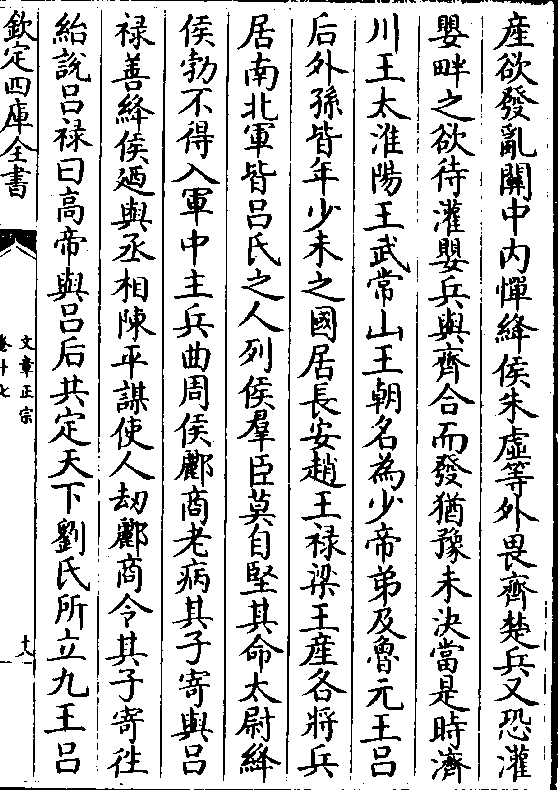 產欲發亂關中内憚絳侯朱虛等外畏齊楚兵又恐灌
嬰畔之欲待灌嬰兵與齊合而發猶豫未決當是時濟
川王太淮陽王武常山王朝名為少帝弟及魯元王吕
后外孫皆年少未之國居長安趙王禄梁王産各將兵
居南北軍皆吕氏之人列侯羣臣莫自堅其命太尉絳
侯勃不得入軍中主兵曲周侯酈商老病其子寄與吕
禄善絳侯廼與丞相陳平謀使人劫酈商令其子寄往
紿說吕禄曰高帝與吕后共定天下劉氏所立九王吕
欽定四庫全書
文章正宗
卷十七
十八